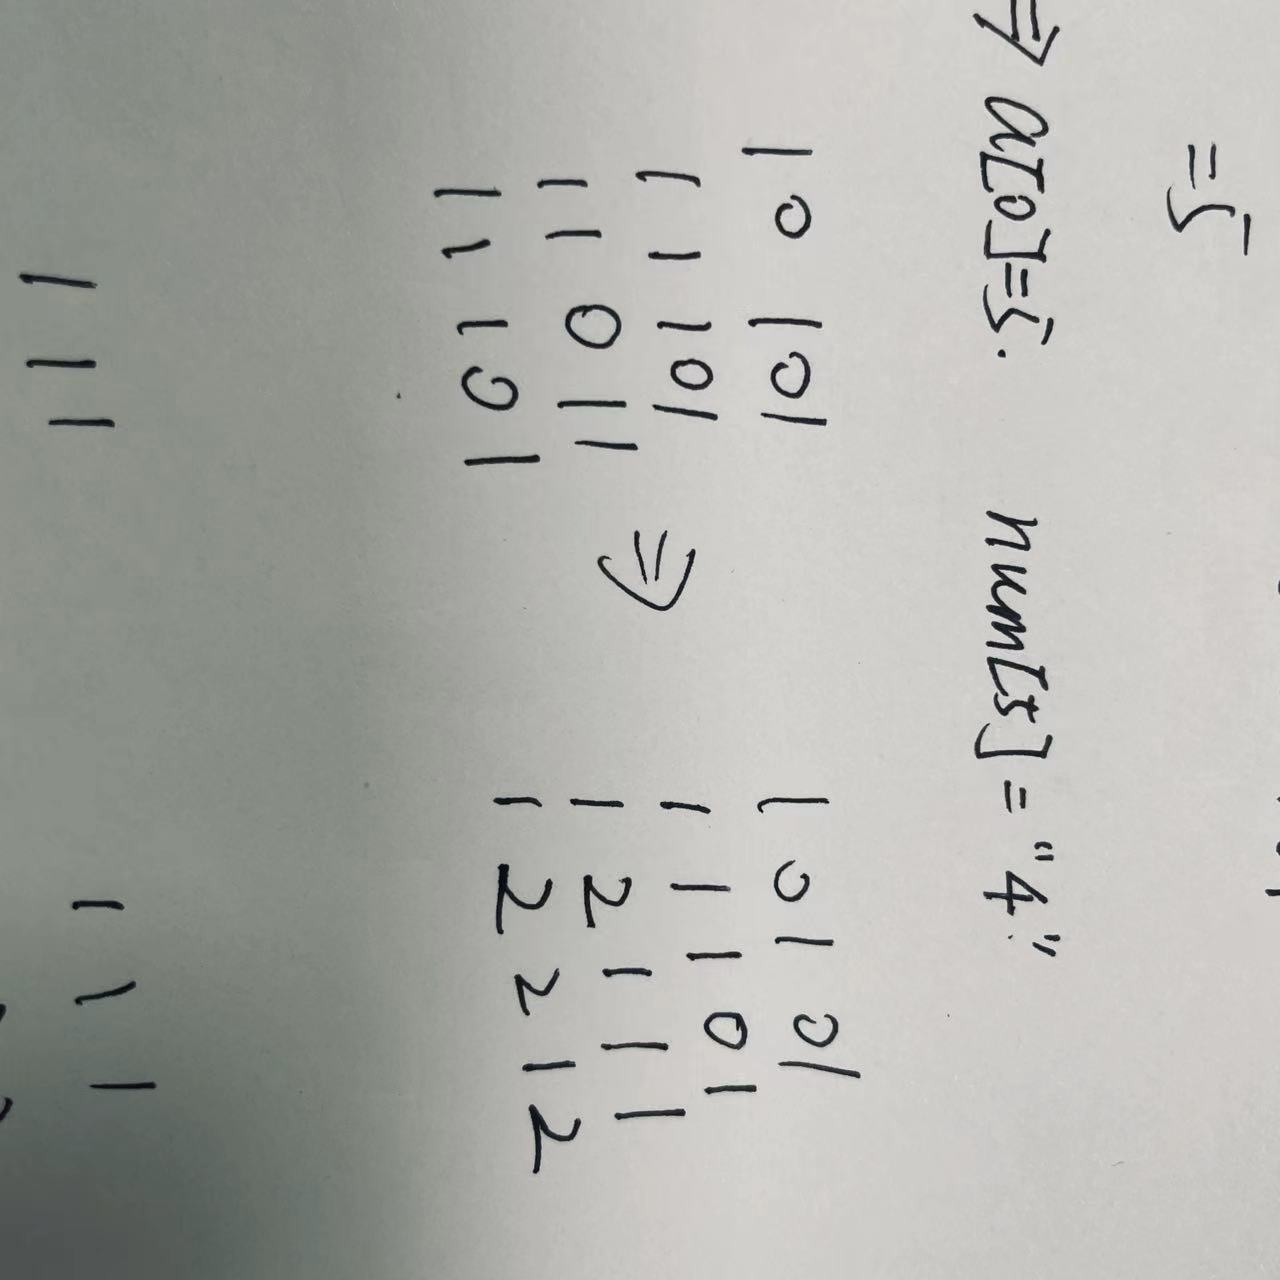 =5
⇒ a[0]=5. num[5] = "4"
1 0 1 0 1 1 0 1 0 1
1 1 1 0 1 ⇒ 1 1 1 0 1
1 1 0 1 1 1 2 1 1 1
1 1 1 0 1 1 2 2 1 2
1 1 1 1 1 1